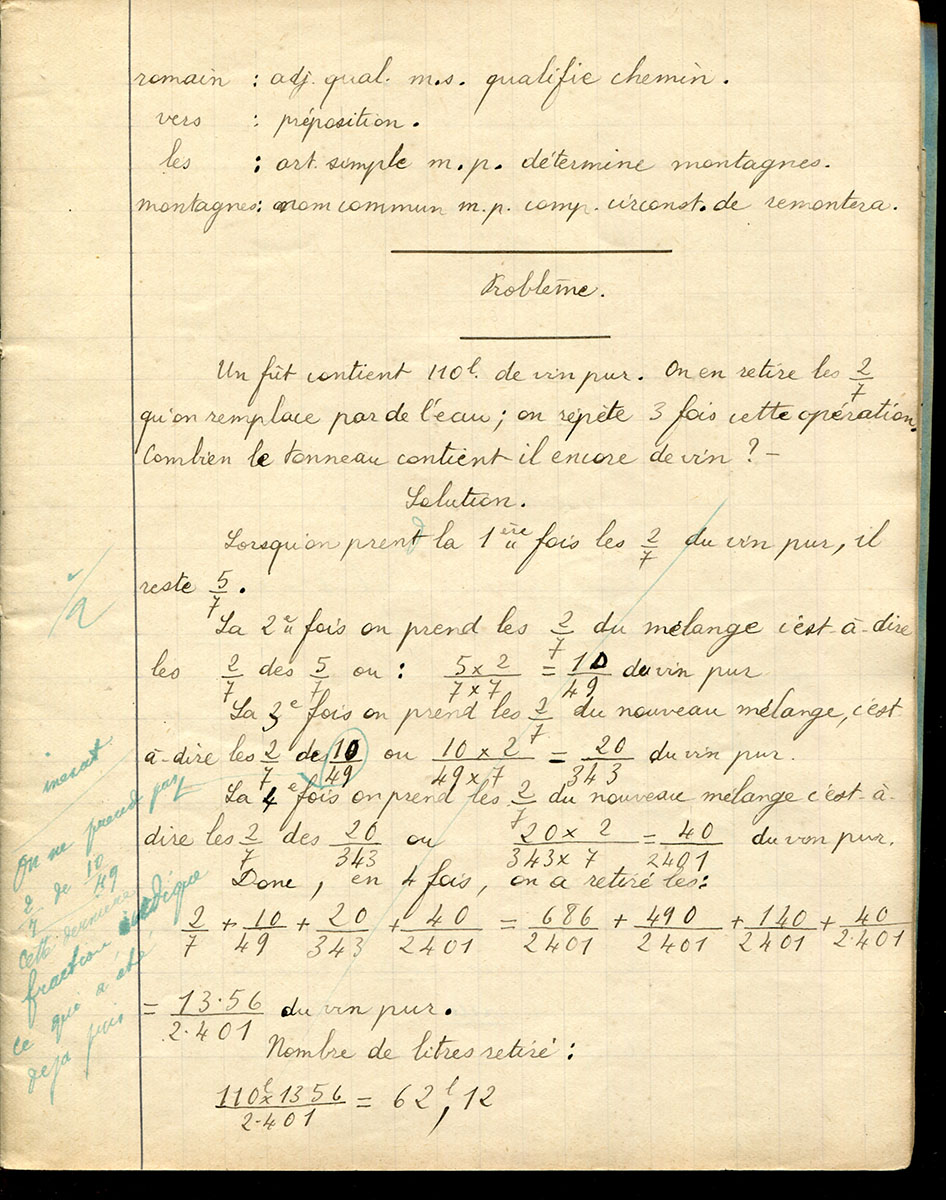 romain : adj. qual. m.s. qualifie chemin.
vers : préposition.
les : art. simple m.p. détermine montagnes.
montagnes: nom commun m.p. comp. circonst. de remontera.
Problème.
Un fût contient 110 l. de vin pur. On en retire les 2/7
qu'on remplace par de l'eau; on répète 3 fois cette opération.
Combien le tonneau contient il encore de vin ? -
Solution.
Lorsqu'on prend la 1ère fois les 2/7 du vin pur, il
reste 5/7.
La 2è fois on prend les 2/7 du mélange c'est-à-dire
les 2/7 des 5/7 ou : 5 x 2 / 7 x 7 = 10/49 du vin pur
La 3e fois on prend les 2/7 du nouveau mélange, c'est-
à-dire les 2/7 des 10/49 ou 10 x 2 / 49 x 7 = 20/343 du vin pur.
La 4e fois on prend les 2/7 du nouveau mélange c'est-à-
dire les 2/7 des 20/343 ou 20 x 2 / 343 x 7 = 40/2401 du vin pur.
Donc, en 4 fois, on a retiré les:
2/7 + 10/49 + 20/343 + 40/2401 = 686/2401 + 490/2401 + 140/2401 + 40/2.401
= 13.56/2.401 du vin pur.
Nombre de litres retiré :
110l x 1356 / 2.401 = 62l,12
inexact
On ne prend pas
2/7 de 10/49
Cette dernière
fraction indique
ce qui a été
déjà pris